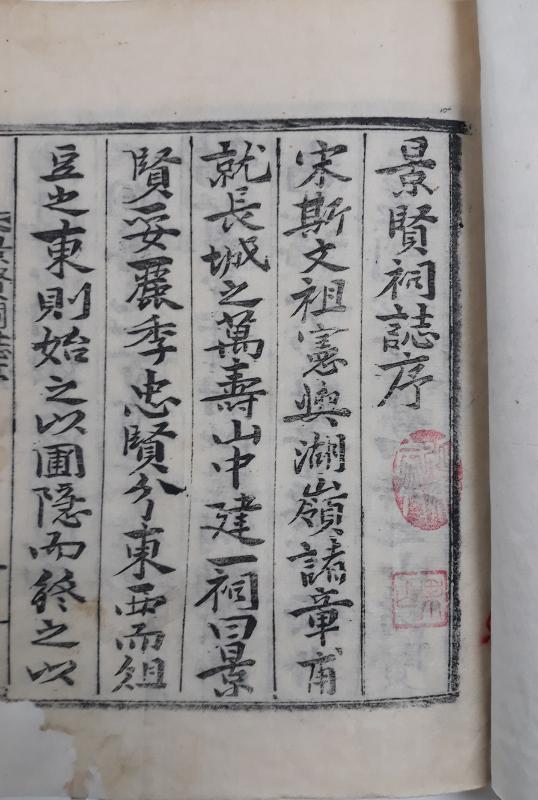 景賢祠誌序
宋斯文祖憲與湖嶺諸章甫
就長城之萬壽山中建一祠曰景
賢妥麗季忠賢分東西而組
豆之東則始之以圃隱而終之以
景賢祠誌序